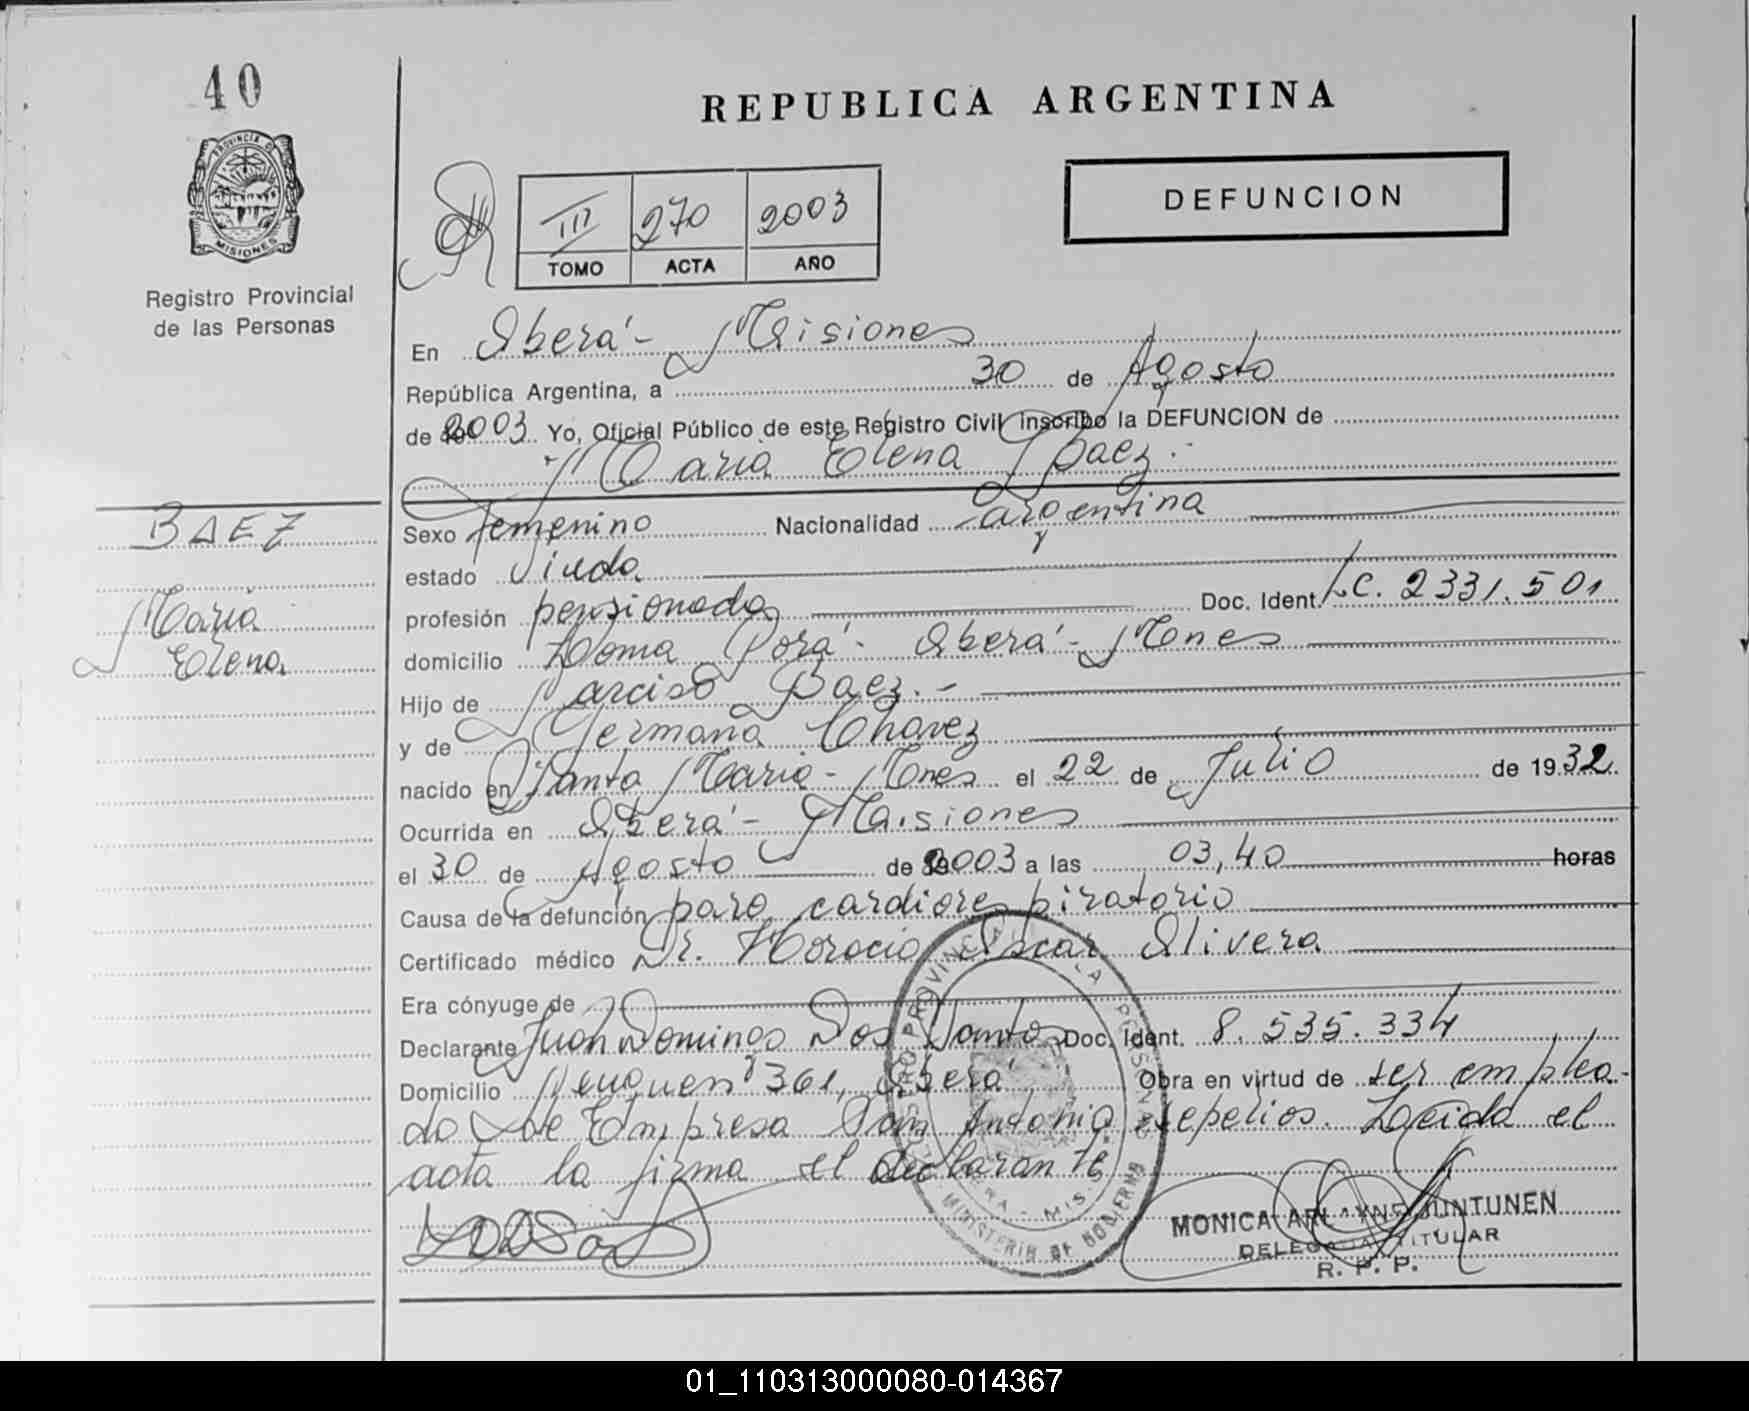 40
PROVINCIA DE
MISIONES
Registro Provincial
de las Personas
REPUBLICA ARGENTINA
DEFUNCION
III 270 2003
TOMO ACTA AÑO
En Oberá - Misiones
República Argentina, a 30 de Agosto
de 2003 Yo, Oficial Público de este Registro Civil inscribo la DEFUNCION de
Maria Elena Baez.
BAEZ
Maria
Elena
Sexo femenino Nacionalidad argentina
estado Viuda
profesión pensionada Doc. Ident. LC. 2331.501
domicilio Loma Porá - Oberá - Mnes
Hijo de Narciso Baez.-
y de Germana Chavez
nacido en Santa Maria - Mnes el 22 de Julio de 1932
Ocurrida en Oberá - Misiones
el 30 de Agosto de 2003 a las 03,40 horas
Causa de la defunción paro cardiorespiratorio
Certificado médico Dr. Horacio Oscar Olivera
Era cónyuge de
Declarante Juan Domingo Dos Santos Doc. Ident. 8.535.334
Domicilio Neuquen 361, Oberá Obra en virtud de ser emplea-
do de Empresa San Antonio sepelios. Leida el
acta la firma el declarante
MONICA JUNTUNEN
DELEGADA TITULAR
R. P. P.
MINISTERIO DE GOBIERNO
01_110313000080-014367